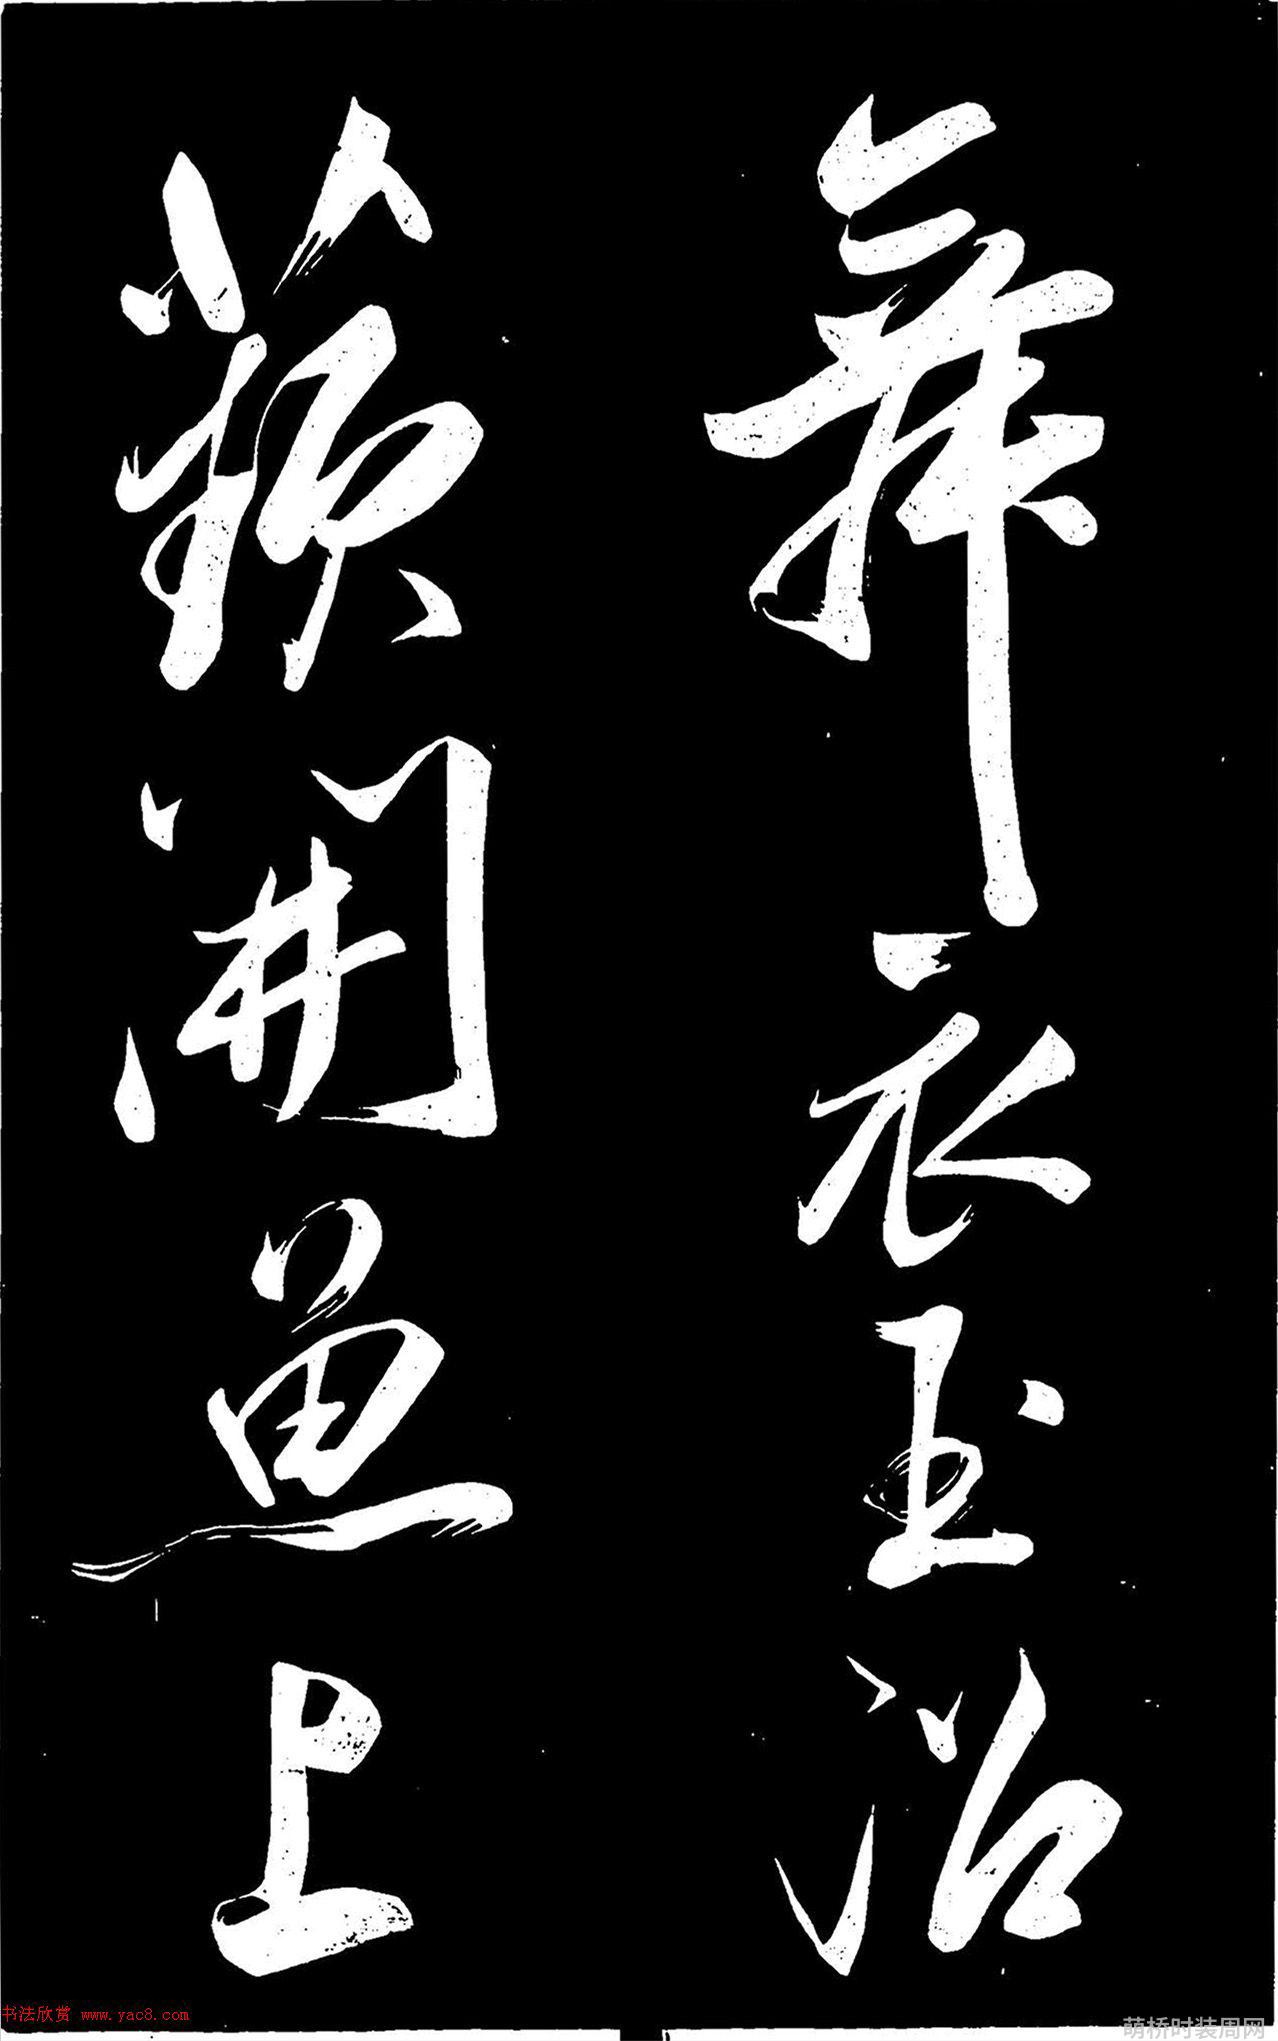 舞衣玉沼
蘋開魚上
书法欣赏 www.yac8.com
萌桥时装周网